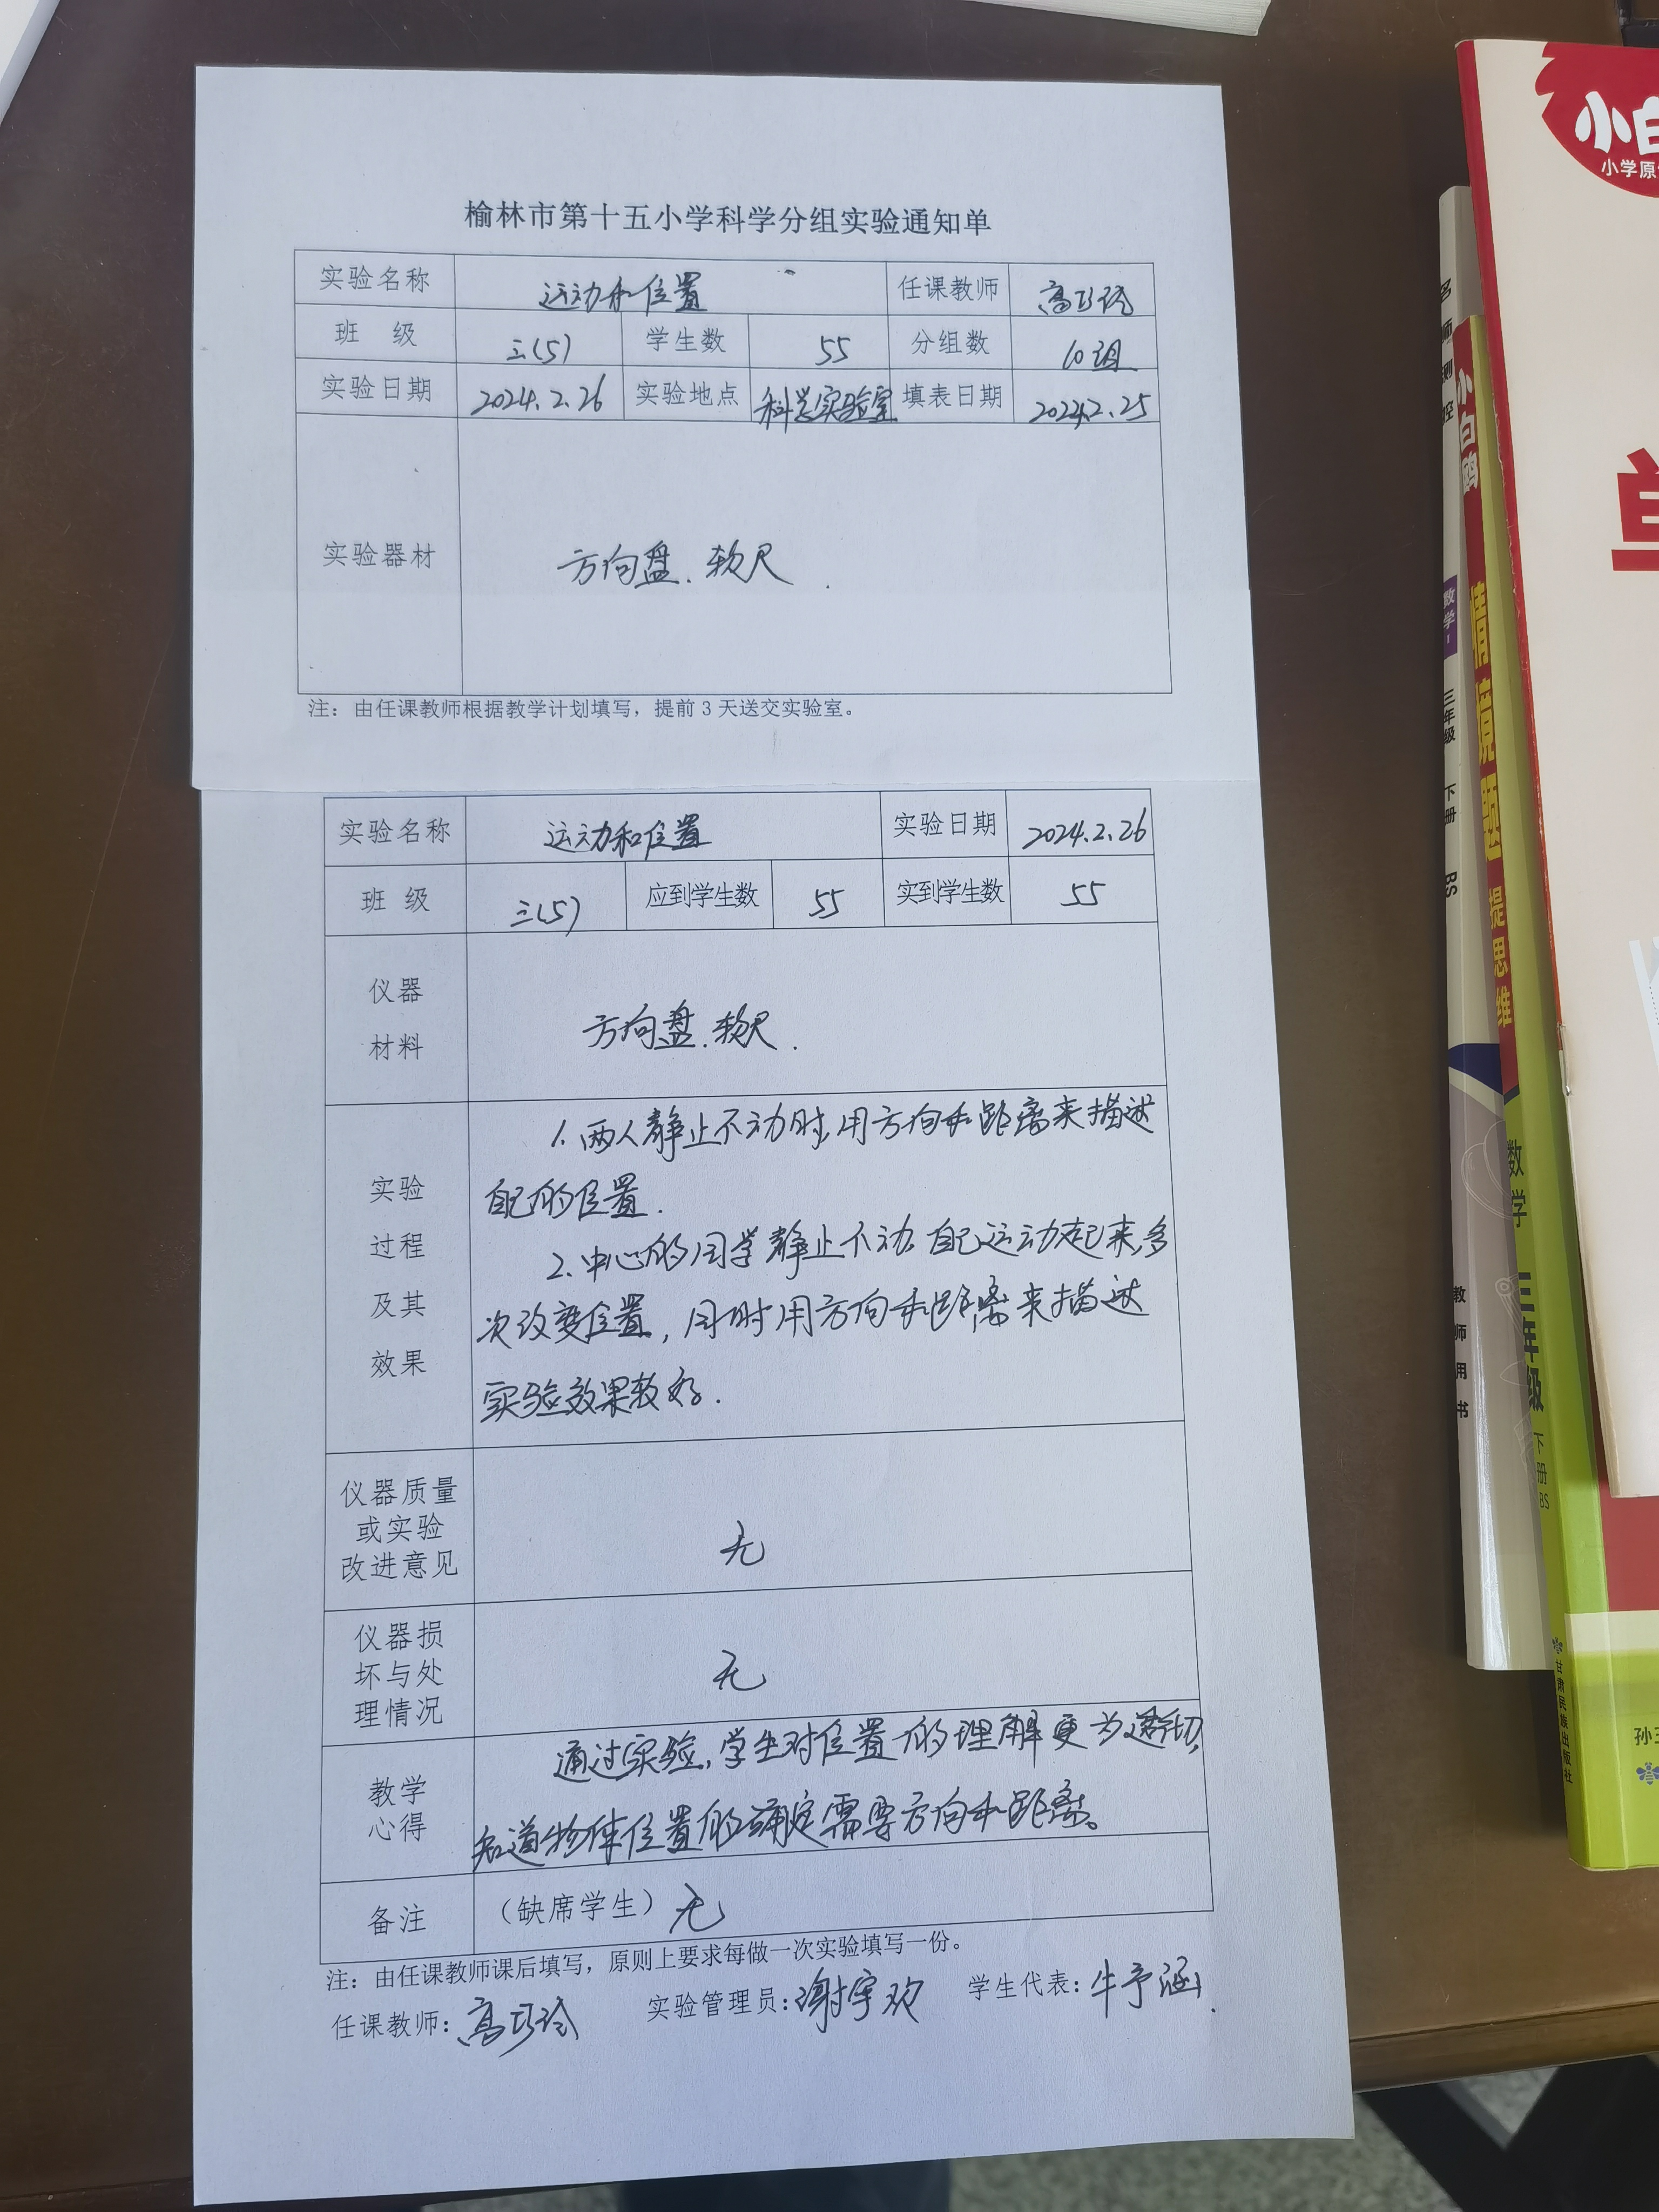 榆林市第十五小学科学分组实验通知单
实验名称 运动和位置 任课教师 高巧玲
班 级 三(5) 学生数 55 分组数 10组
实验日期 2024.2.26 实验地点 科学实验室 填表日期 2024.2.25
实验器材 方向盘.软尺.
注：由任课教师根据教学计划填写，提前3天送交实验室。
实验名称 运动和位置 实验日期 2024.2.26
班 级 三(5) 应到学生数 55 实到学生数 55
仪器
材料
方向盘.软尺.
实验
过程
及其
效果
1.两人静止不动时,用方向和距离来描述
自己的位置.
2.中心的同学静止不动,自己运动起来,多
次改变位置,同时用方向和距离来描述
实验效果较好.
仪器质量
或实验
改进意见
无
仪器损
坏与处
理情况
无
教学
心得
通过实验,学生对位置的理解更为透彻,
知道物体位置的确定需要方向和距离。
备注 （缺席学生）无
注：由任课教师课后填写，原则上要求每做一次实验填写一份。
任课教师：高巧玲 实验管理员：谢宇欢 学生代表：牛予涵.
小白
小学原
单
小白鸥
情境题
提思维
数学
三年级
下册
BS
甘肃民族出版社
孙
名师测控
数学
三年级
下册
BS
教师用书